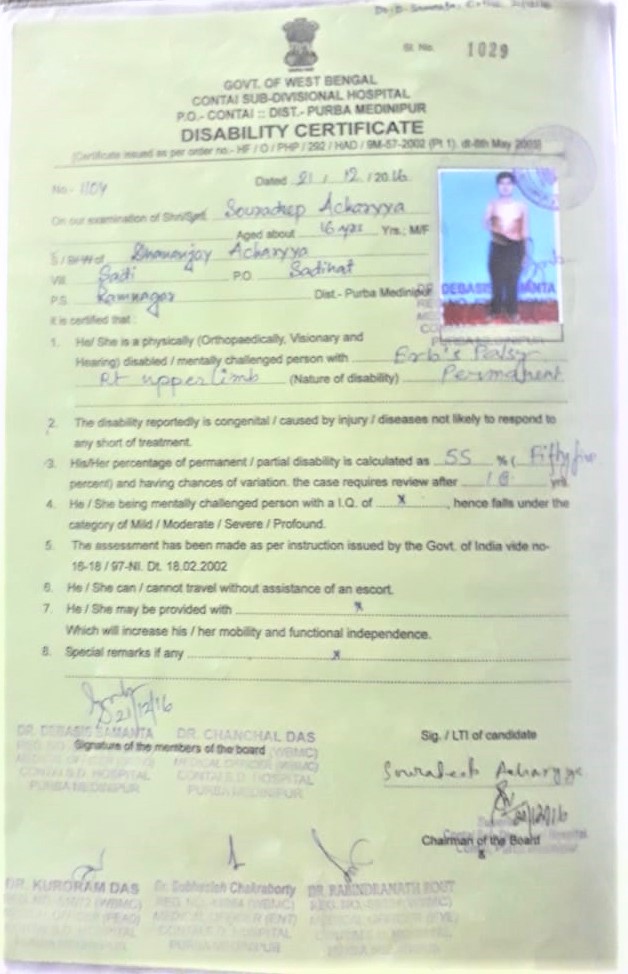 Sl. No. 1029
GOVT. OF WEST BENGAL
CONTAI SUB-DIVISIONAL HOSPITAL
P.O.- CONTAI :: DIST.- PURBA MEDINIPUR
DISABILITY CERTIFICATE
(Certificate issued as per order no.- HF / O / PHP / 292 / HAD / 9M-57-2002 (Pt 1). dt-8th May 2003)
No.- 1104 Dated 21 / 12 / 2016
On our examination of Shri/Smt. Souradeep Acharyya
Aged about 16 yrs Yrs.; M/F
S / D/ W of Dhananjay Acharyya
Vill Sadi P.O. Sadihat
P.S. Ramnagar Dist.- Purba Medinipur
It is certified that :
1. He/ She is a physically (Orthopaedically, Visionary and
Hearing) disabled / mentally challenged person with Erb's Palsy
Rt upper limb (Nature of disability) Permanent
2. The disability reportedly is congenital / caused by injury / diseases not likely to respond to
any short of treatment.
3. His/Her percentage of permanent / partial disability is calculated as 55 % ( Fifty five
percent) and having chances of variation. the case requires review after yrs.
4. He / She being mentally challenged person with a I.Q. of x , hence falls under the
category of Mild / Moderate / Severe / Profound.
5. The assessment has been made as per instruction issued by the Govt. of India vide no-
16-18 / 97-NI. Dt. 18.02.2002
6. He / She can / cannot travel without assistance of an escort.
7. He / She may be provided with x
Which will increase his / her mobility and functional independence.
8. Special remarks if any x
21/12/16
DR. DEBASIS SAMANTA DR. CHANCHAL DAS
Signature of the members of the board (WBMC)
MEDICAL OFFICER
CONTAI S.D. HOSPITAL CONTAI S.D. HOSPITAL
PURBA MEDINIPUR PURBA MEDINIPUR
Sig. / LTI of candidate
Souradeep Acharyya
21/12/16
Chairman of the Board
DR. KURORAM DAS Dr. Subhasish Chakraborty DR. RABINDRANATH ROUT
MEDICAL OFFICER (ENT) MEDICAL OFFICER (EYE)
PURBA MEDINIPUR